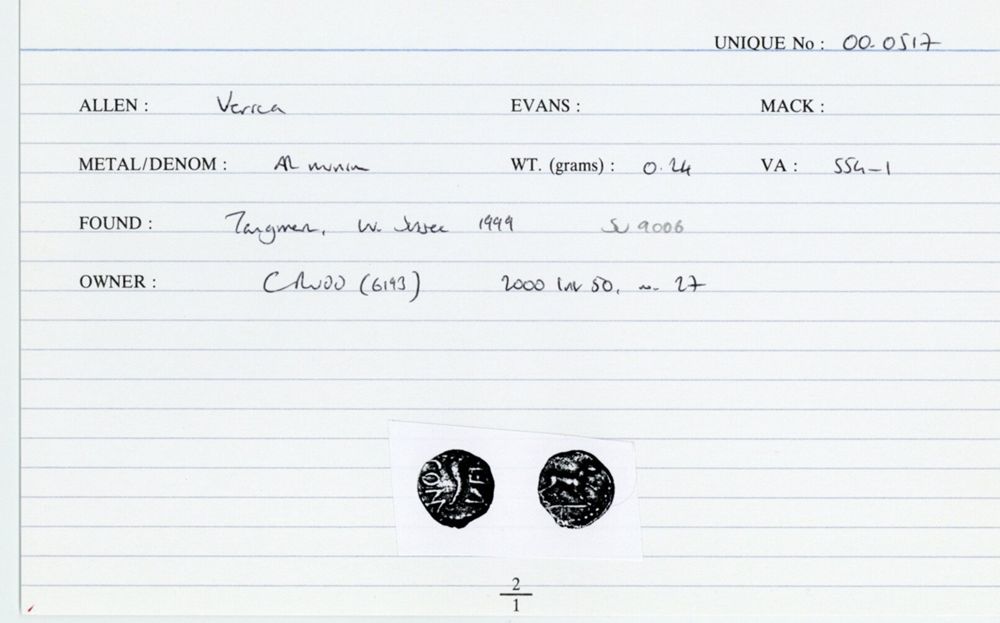 UNIQUE No : 00.0517
ALLEN : Verica EVANS : MACK :
METAL/DENOM : AR minim WT. (grams) : 0.24 VA : 554-1
FOUND : Tangmere, W. Sussex 1999 SU 9006
OWNER : (6193) 2000 Inv 50, no. 27
2
1